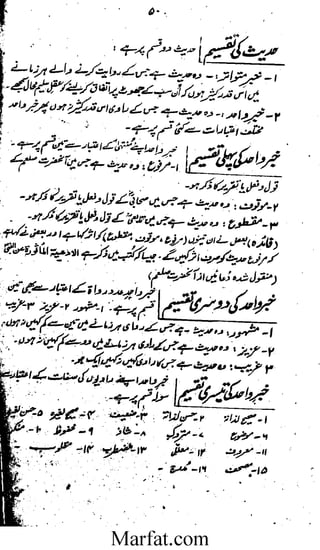 ۵۰
حدیث کی تقسیم | حدیث دو قسم پر ہے:
۱- خبر متواتر:- وہ حدیث ہے جس کے روایت کرنے والے ہر زمانے
میں اس قدر کثیر ہوں کہ ان سب کے جھوٹ پر اتفاق کر لینے کو عقل سلیم محال سمجھے۔
۲- خبر واحد:- وہ حدیث ہے جس کے راوی اس قدر کثیر نہ ہوں پھر خبر واحد
مختلف اعتبارات سے کئی قسم پر ہے۔
خبر واحد کی پہلی تقسیم | خبر واحد اپنے منتہیٰ کے اعتبار سے تین قسم پر ہے۔
۱- مرفوع:- وہ حدیث ہے جس میں آنحضرت صلعم کے
قول و فعل یا تقریر کا ذکر ہو۔
۲- موقوف:- وہ حدیث ہے جس میں صحابی کے قول و فعل یا تقریر کا ذکر ہو۔
۳- مقطوع:- وہ حدیث ہے جس میں تابعی کے قول و فعل یا تقریر کا ذکر ہو۔
(فائدہ) بعض نے ان تینوں (مرفوع، موقوف، مقطوع) کو اثر کہا ہے اور بعض نے کہا ہے
کہ مرفوع حدیث کو صرف اثر کہیں گے۔ جیسا کہ کتب میں ذکر ہے الادعیۃ الماثورۃ عن النبی
(منقول شدہ دعائیں از آنحضرت صلعم)
خبر واحد کی دوسری تقسیم | خبر واحد عدد رواۃ کے اعتبار سے بھی تین
قسم پر ہے: ۱- مشہور ۲- عزیز ۳- غریب
۱- مشہور:- وہ حدیث ہے جس کے راوی ہر زمانے میں تین سے کم کہیں نہ ہوں۔
۲- عزیز:- وہ حدیث ہے جس کے راوی ہر زمانے میں دو سے کم کہیں نہ ہوں۔
۳- غریب:- وہ حدیث ہے جس کا راوی کہیں نہ کہیں ایک ہو۔
خبر واحد کی تیسری تقسیم | خبر واحد اپنے راویوں کی صفات کے اعتبار سے
سولہ قسم پر ہے۔
۱- صحیح لذاتہ ۲- حسن لذاتہ ۳- ضعیف ۴- صحیح لغیرہ ۵- حسن لغیرہ
۶- موضوع ۷- متروک ۸- شاذ ۹- محفوظ ۱۰- منکر
۱۱- معروف ۱۲- معلل ۱۳- مضطرب ۱۴- مقلوب
۱۵- مصحف ۱۶- مدرج
Marfat.com